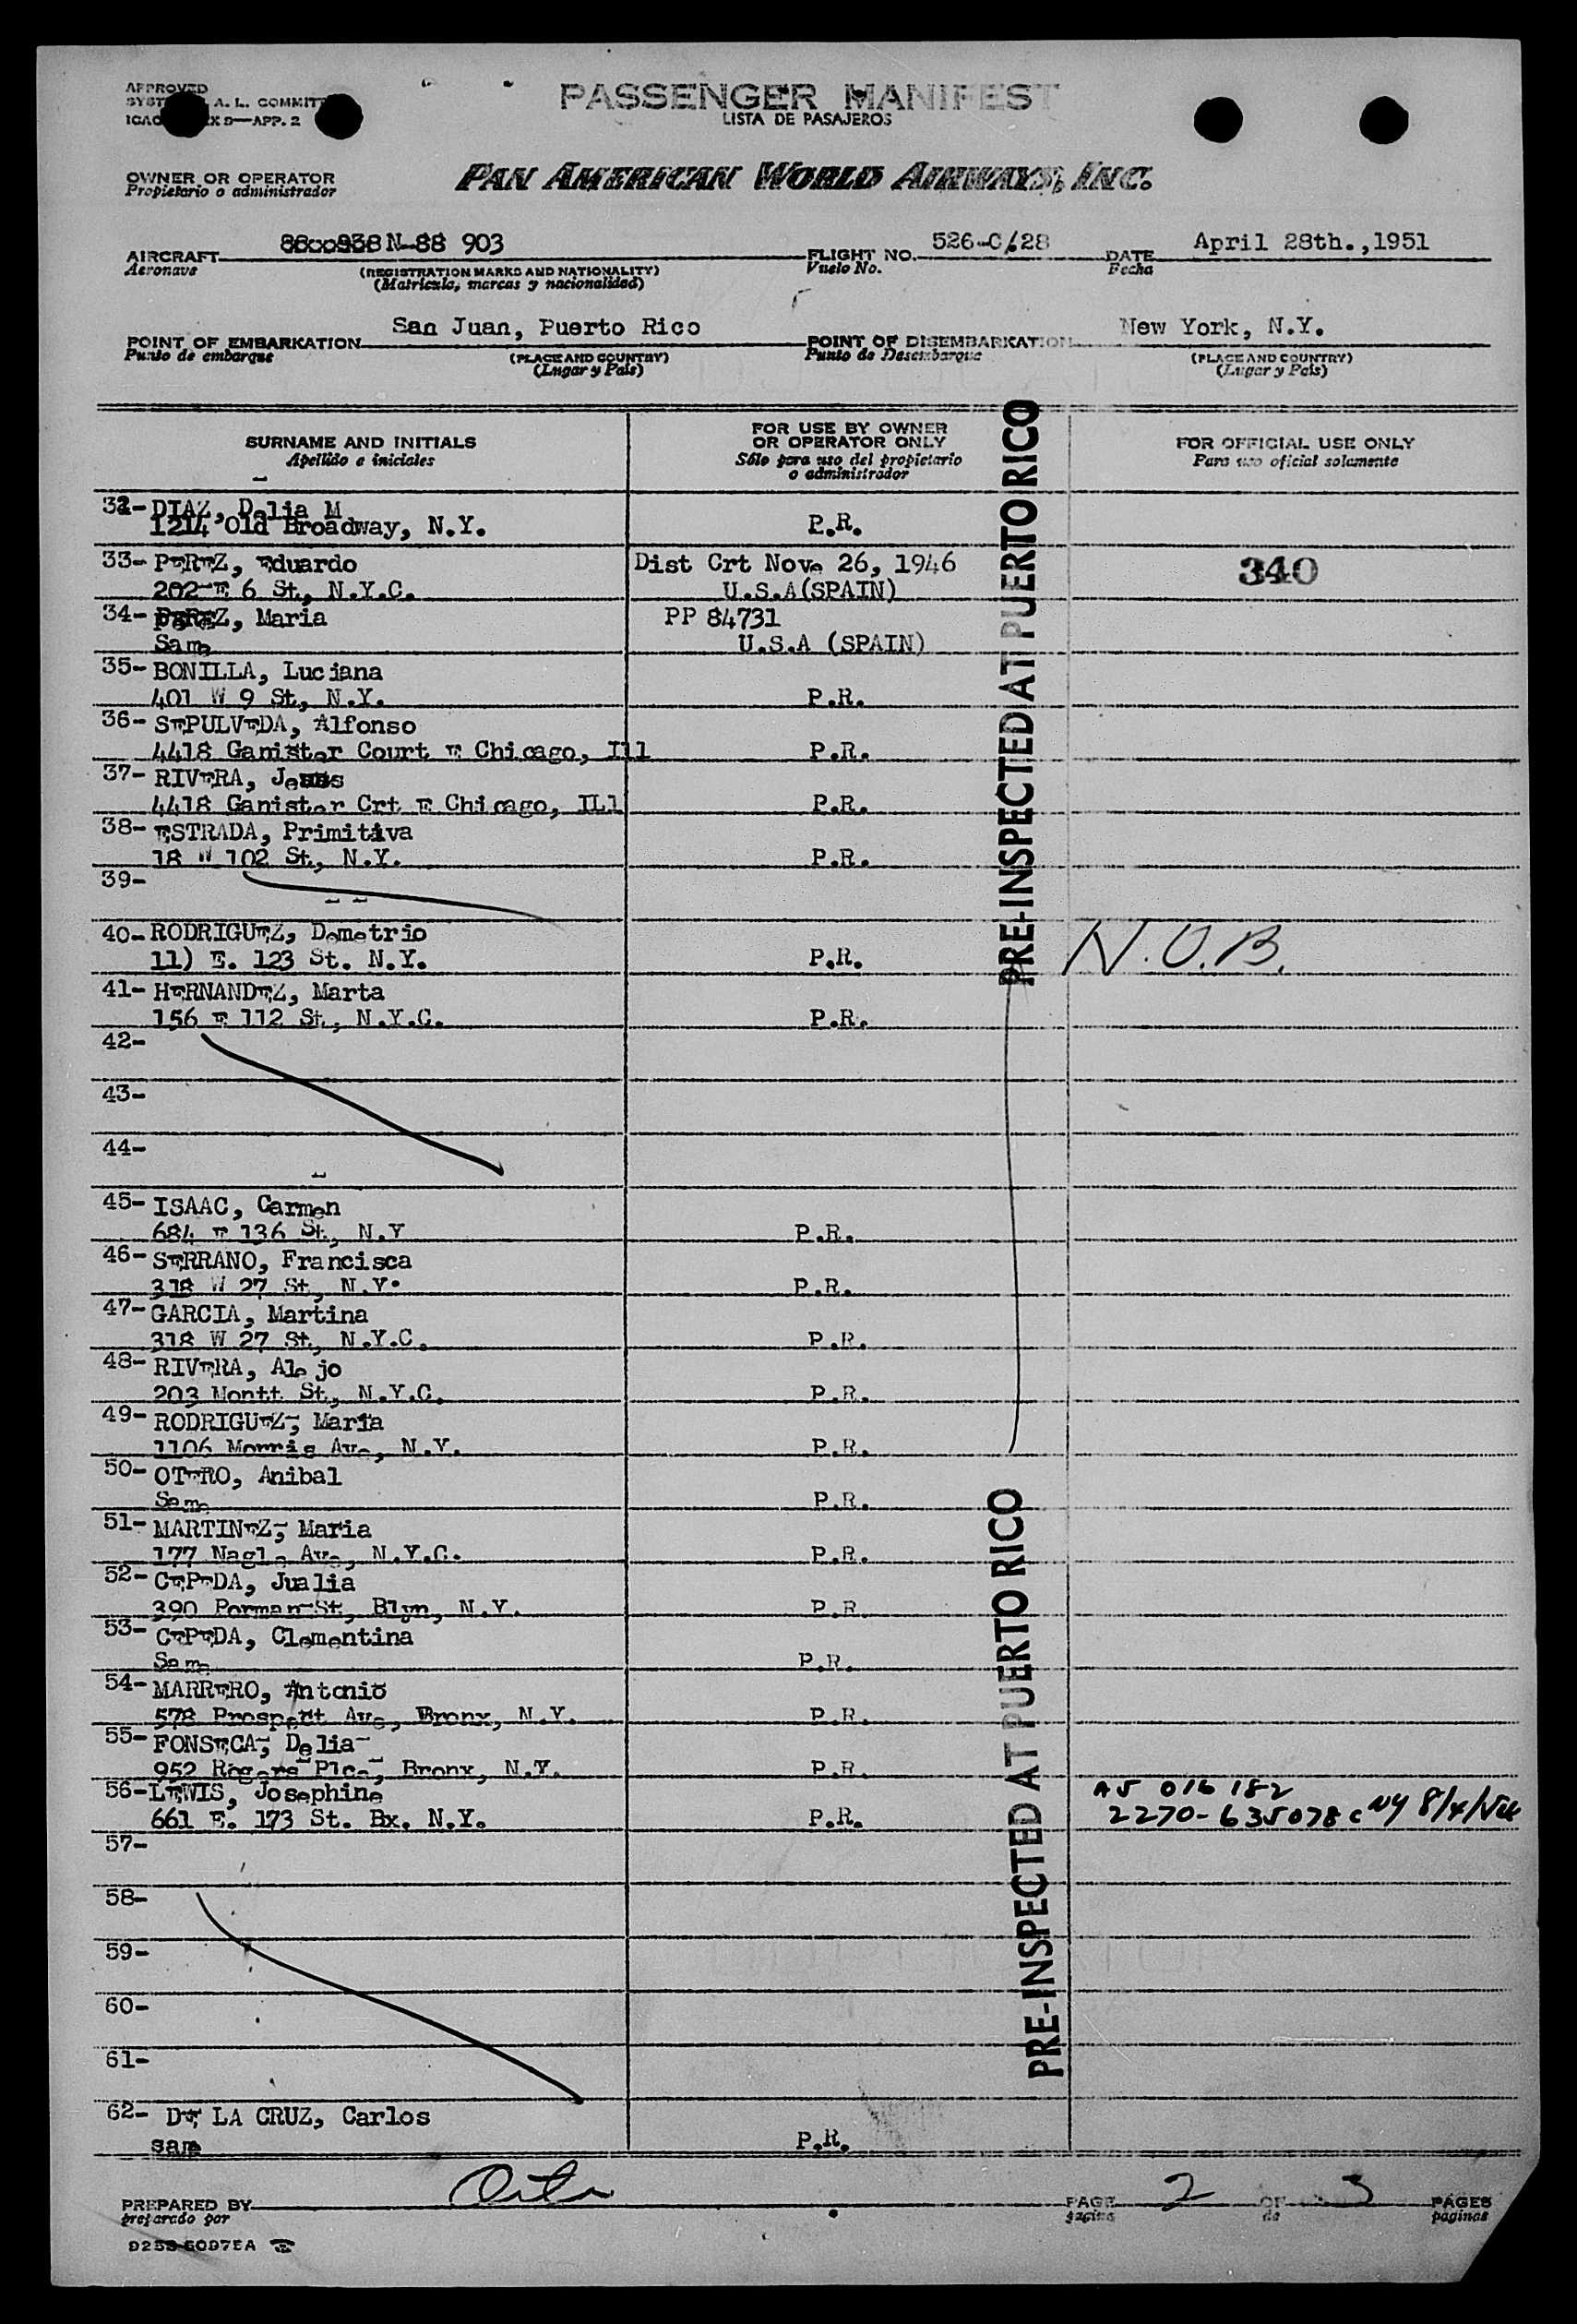 APPROVED
A. L.
X 9—APP. 2
PASSENGER MANIFEST
LISTA DE PASAJEROS
OWNER OR OPERATOR
Propietario o administrador
PAN AMERICAN WORLD AIRWAYS, INC.
AIRCRAFT N-88 903 FLIGHT NO. 526-C/28 DATE April 28th.,1951
Aeronave (REGISTRATION MARKS AND NATIONALITY) Vuelo No. Fecha
(Matricula, marcas y nacionalidad)
POINT OF EMBARKATION San Juan, Puerto Rico POINT OF DISEMBARKATION New York, N.Y.
Punto de embarque (PLACE AND COUNTRY) Punto de Desembarque (PLACE AND COUNTRY)
(Lugar y Pais) (Lugar y Pais)
SURNAME AND INITIALS FOR USE BY OWNER OR OPERATOR ONLY FOR OFFICIAL USE ONLY
Apellido e iniciales Sólo para uso del propietario o administrador Para uso oficial solamente
PRE-INSPECTED AT PUERTO RICO
32- DIAZ, Delia M
1214 Old Broadway, N.Y. P.R.
33- PEREZ, Eduardo Dist Crt Nov. 26, 1946 340
202 E 6 St., N.Y.C. U.S.A(SPAIN)
34- PEREZ, Maria PP 84731
Same U.S.A (SPAIN)
35- BONILLA, Luciana
401 W 9 St, N.Y. P.R.
36- SEPULVEDA, Alfonso
4418 Ganister Court E Chicago, Ill P.R.
37- RIVERA, Jesus
4418 Ganister Crt E Chicago, ILl P.R.
38- ESTRADA, Primitiva
18 W 102 St., N.Y. P.R.
39-
40- RODRIGUEZ, Demetrio
11) E. 123 St. N.Y. P.R. N.O.B.
41- HERNANDEZ, Marta
156 E 112 St., N.Y.C. P.R.
42-
43-
44-
45- ISAAC, Carmen
684 E 136 St., N.Y P.R.
46- SERRANO, Francisca
318 W 27 St, N.Y. P.R.
47- GARCIA, Martina
318 W 27 St, N.Y.C. P.R.
48- RIVERA, Alejo
203 Montt St, N.Y.C. P.R.
49- RODRIGUEZ, Maria
1106 Morris Ave, N.Y. P.R.
50- OTERO, Anibal
Same P.R.
51- MARTINEZ, Maria
177 Nagle Ave, N.Y.C. P.R.
52- CEPEDA, Jualia
390 Porman St, Blyn, N.Y. P.R
53- CEPEDA, Clementina
Same P.R.
54- MARRERO, Antonio
578 Prospect Ave, Bronx, N.Y. P.R.
55- FONSECA, Delia
952 Rogers Plce, Bronx, N.Y. P.R.
56- LEWIS, Josephine A5 016 182
661 E. 173 St. Bx. N.Y. P.R. 2270-635078 c NY
57-
58-
59-
60-
61-
PRE-INSPECTED AT PUERTO RICO
62- DE LA CRUZ, Carlos
same P.R.
PREPARED BY PAGE 2 OF 3 PAGES
preparado por pagina de paginas